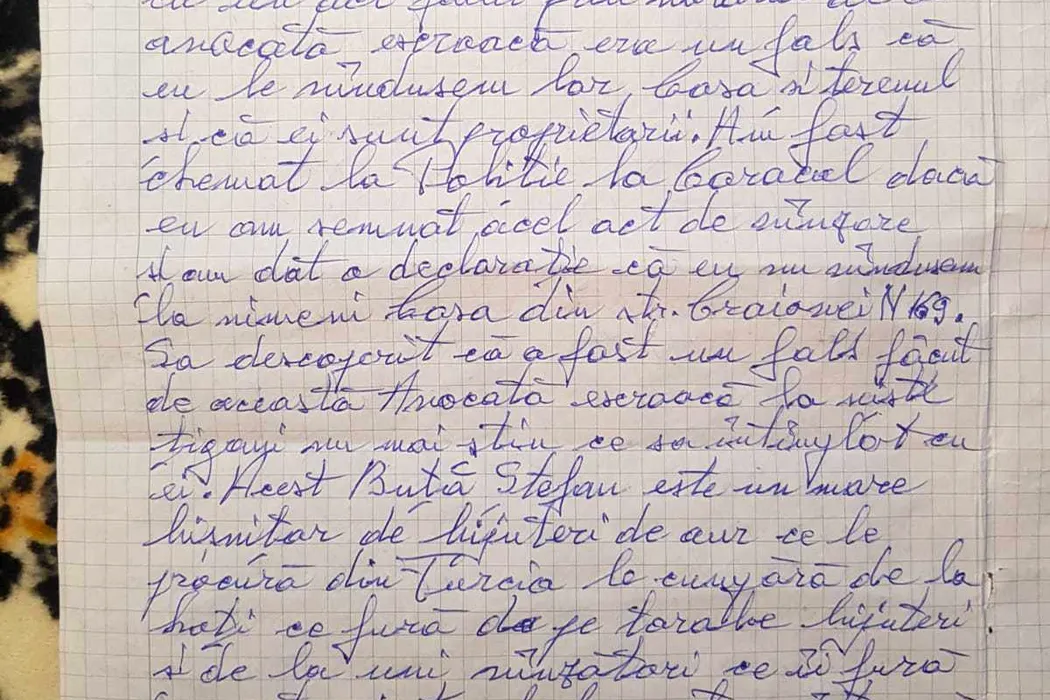 avocată escroacă era un fals că
eu le vîndusem lor casa si terenul
si că ei sunt proprietarii. Am fost
chemat la Politie la Caracal dacă
eu am semnat acel act de vînzare
si am dat o declaratie că eu nu vîndusem
la nimeni casa din str. Craiovei N 169.
Sa descoperit că a fost un fals făcut
de aceastā Avocată escroacă la niste
țigani nu mai știu ce sa întîmplat cu
ei. Acest Buță Stefan este un mare
bișnitar de bijuteri de aur ce le
procură din Turcia le cumpără de la
hoți ce fură de pe tarabe bijuteri
si de la uni vînzători ce îi fură